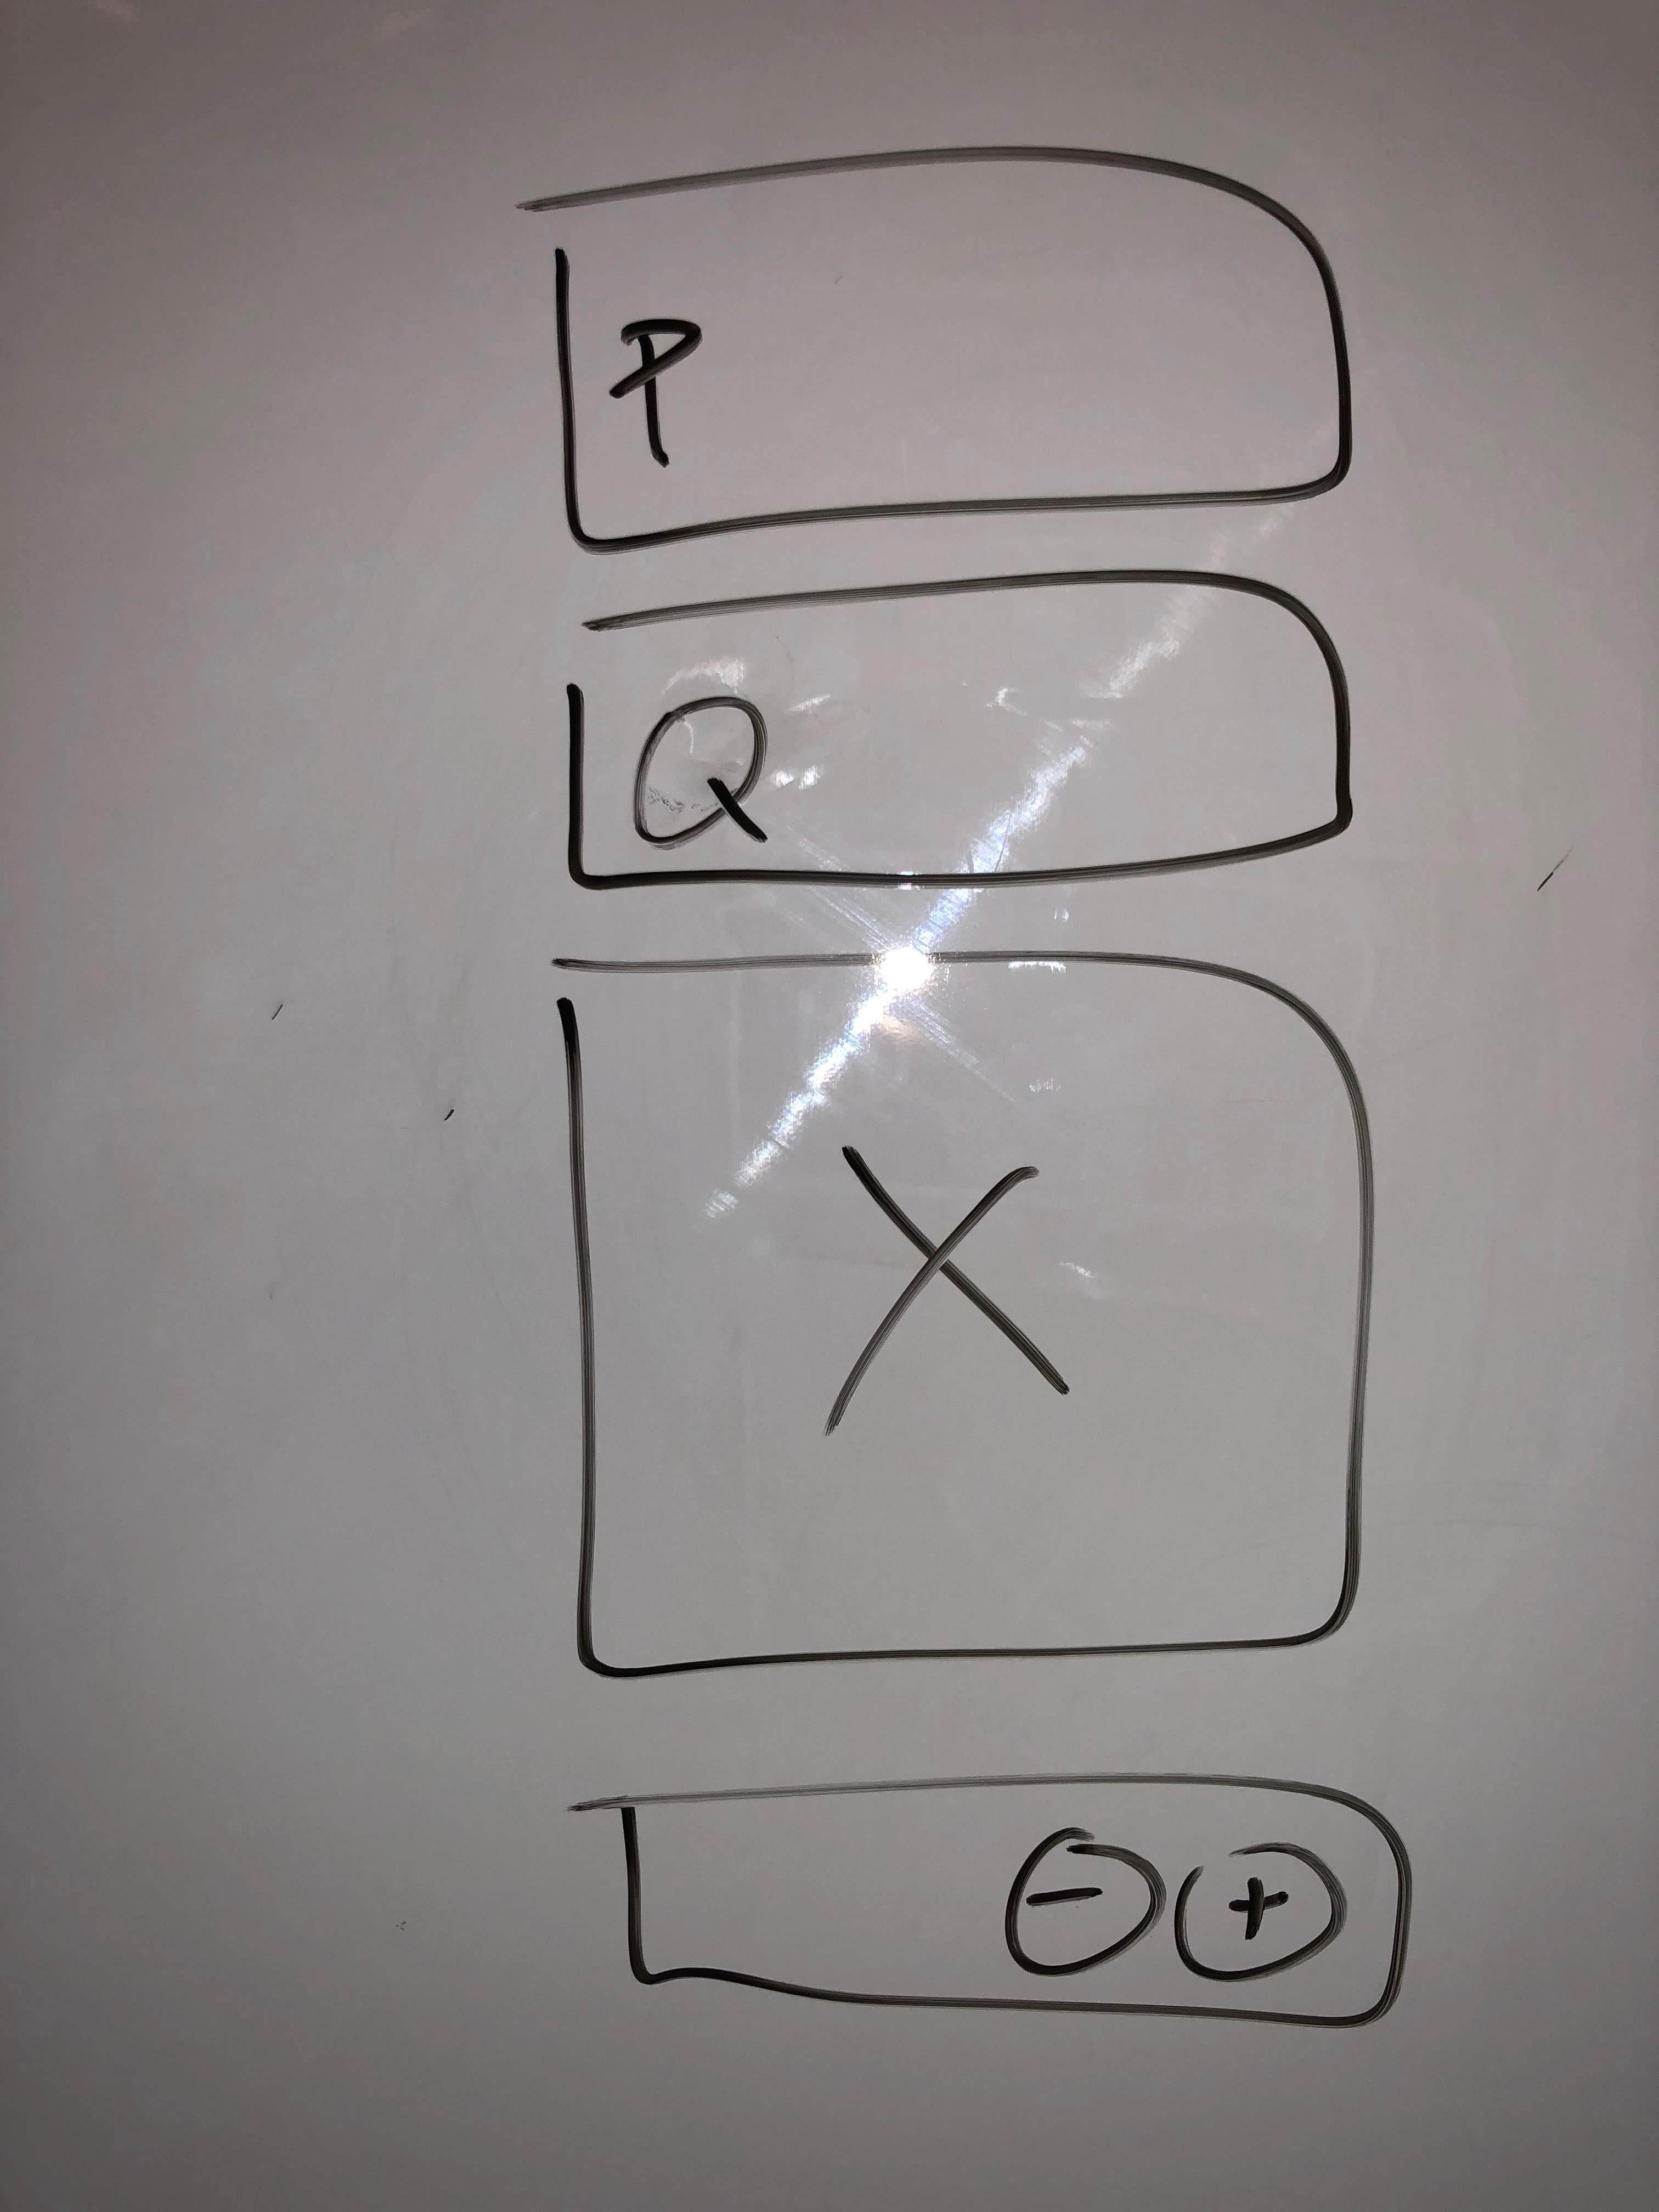 P
Q
X
- +